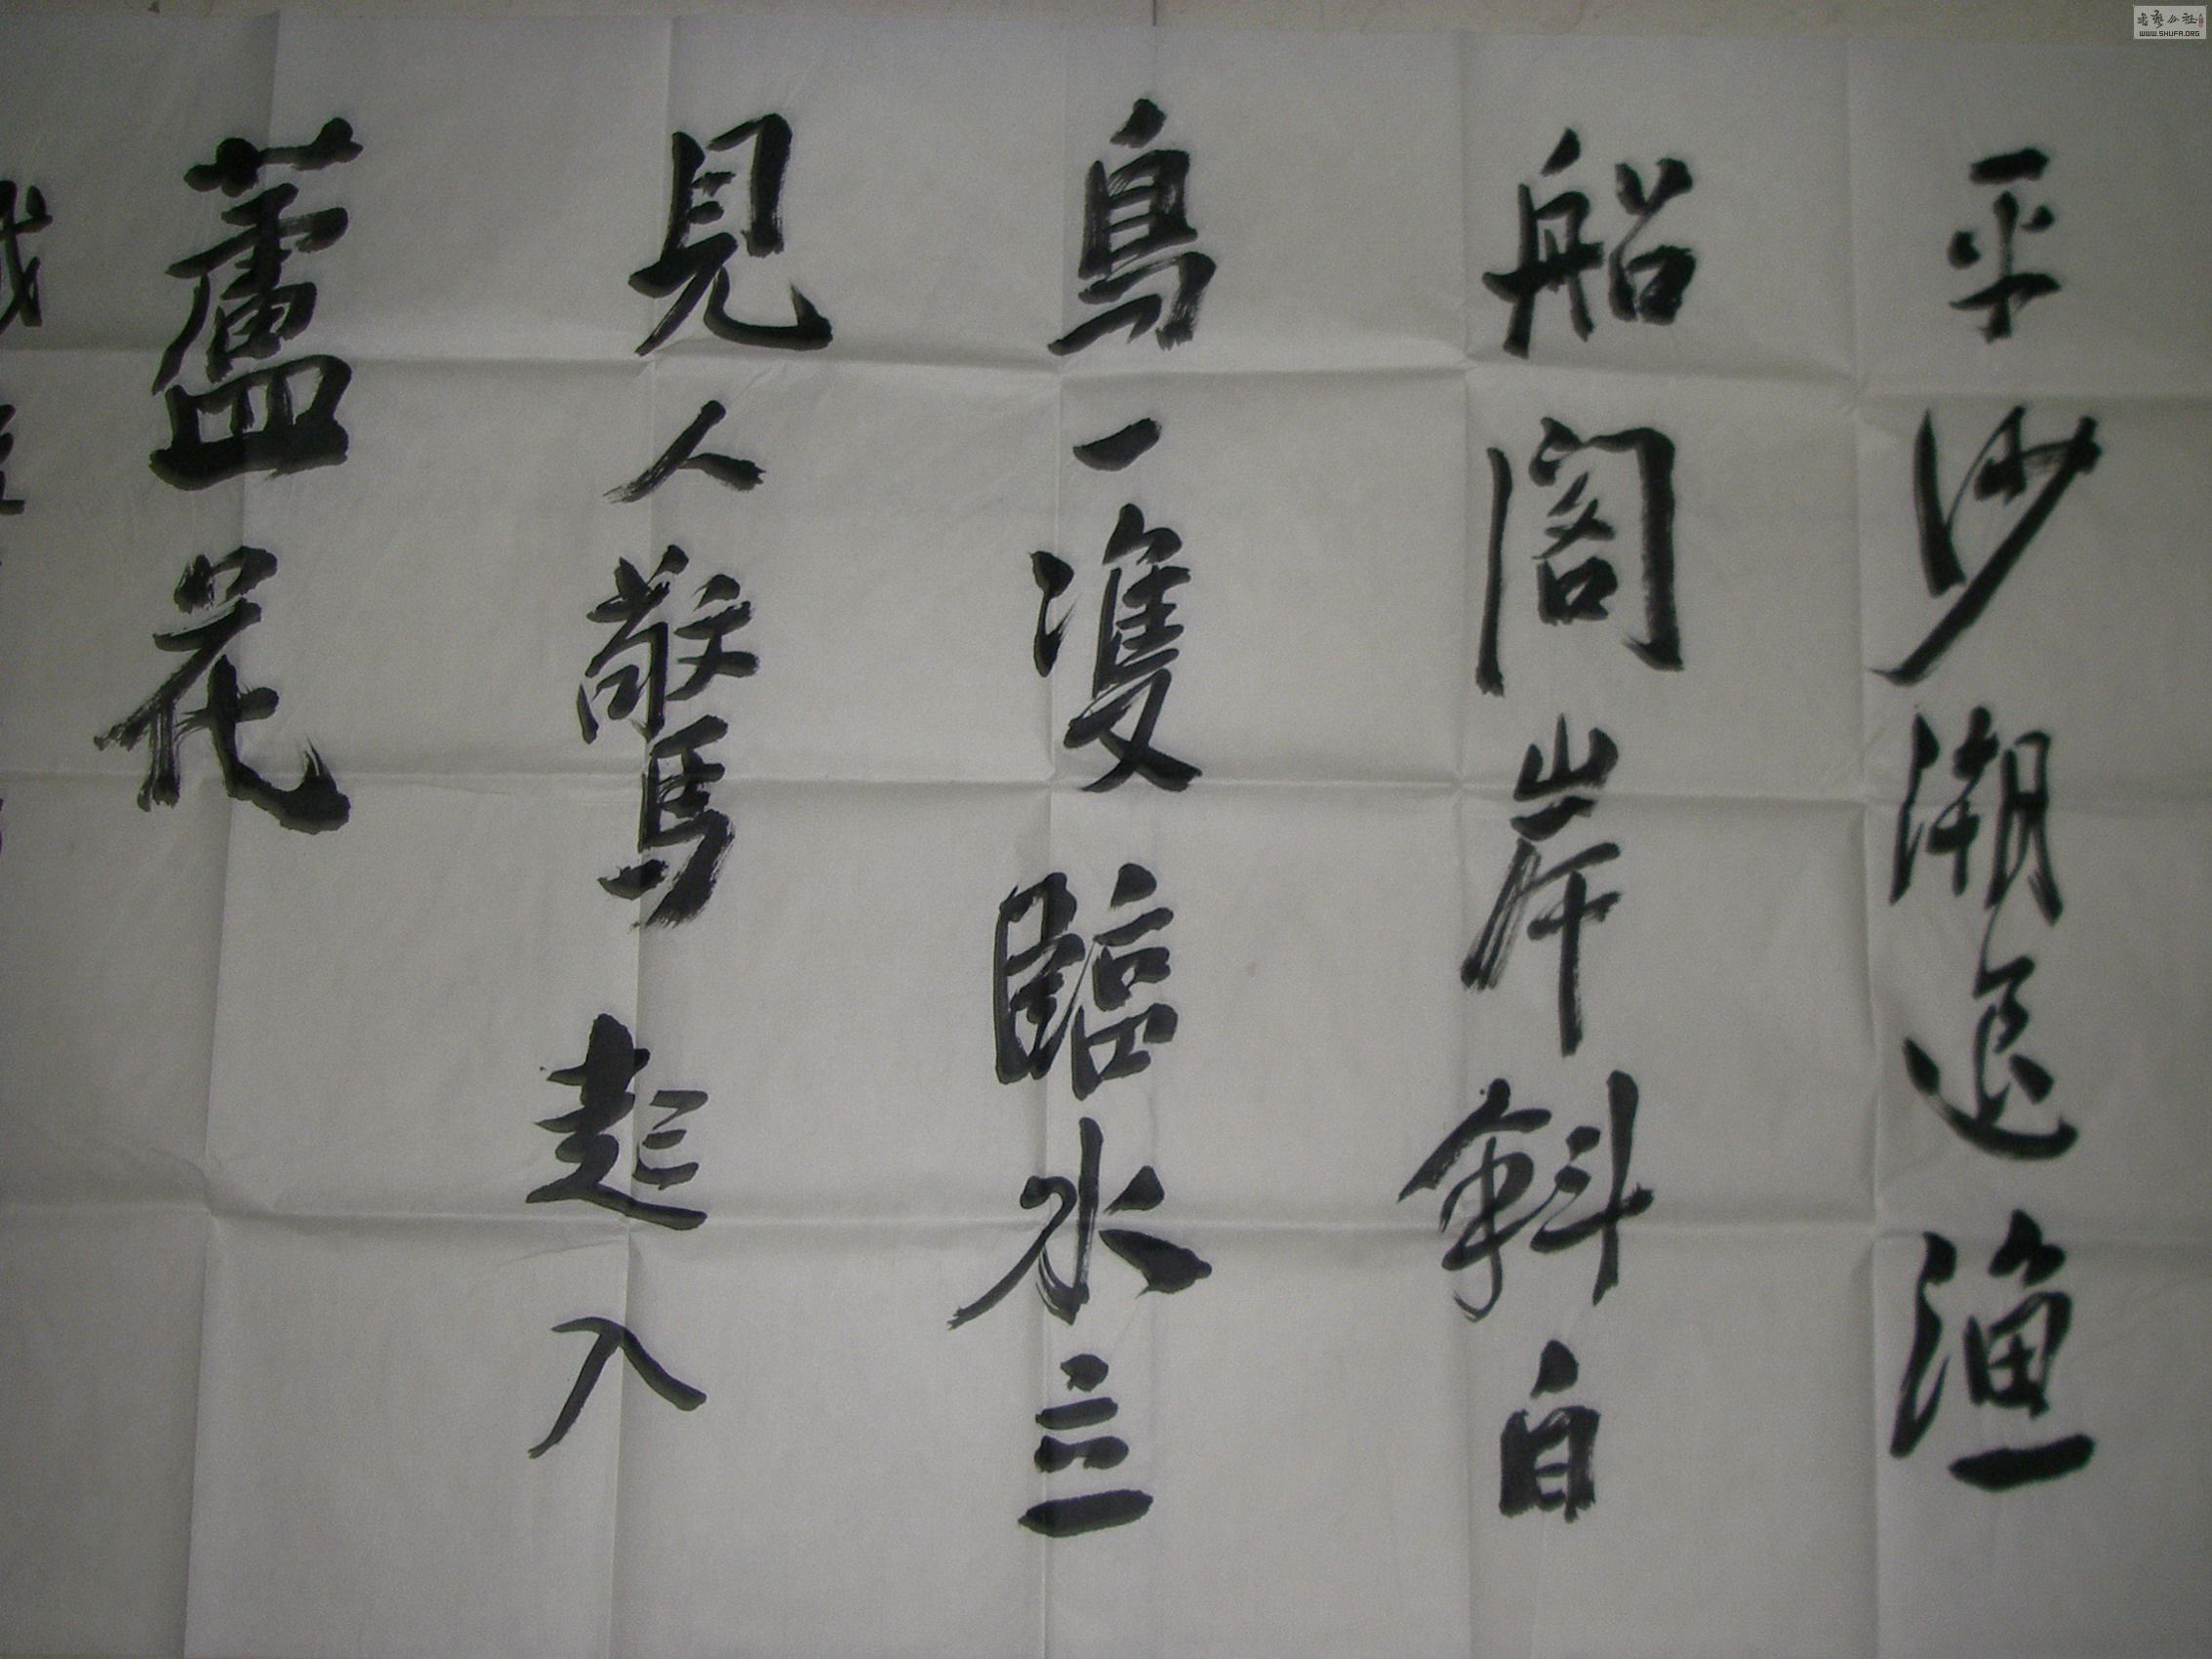 平沙潮退漁
船閣岸斜白
鳥一雙臨水立
見人驚起入
蘆花
書藝公社
WWW.SHUFA.ORG